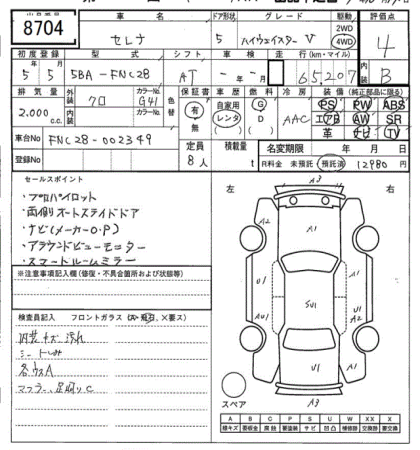 8704
車名 ドア形状 グレード 駆動 評価点
セレナ 5 ハイウェイスター V 2WD 4WD 4
初度登録 型式 シフト 車検 走行(km・マイル) 内装
5年5月 5BA-FNC28 AT -年 月 65,207 B
排気量 外装 色 カラーNo. 色替 保証書 車歴 燃料 冷房 装備(純正部品に限る)
2,000 c.c. クロ G41 有 無 自家用 レンタ G D AAC PS PW エアB AW SR 革 ナビ TV
車台No FNC28-002349
登録No.
定員 8人 積載量 t
名変期限 年 月 日
R料金 未預託 預託済 12980円
セールスポイント
・プロパイロット
・両側オートスライドドア
・ナビ(メーカーO.P)
・アラウンドビューモニター
・スマートルームミラー
※注意事項記入欄(修復・不具合箇所および状態等)
検査員記入 フロントガラス(ヒビ・飛石、×要ス)
内装キズ汚れ
シートしみ
各ウスA
マフラー、足廻りC
左 右
A3
A2 A1 A1
U1 SU1 U1
AU1 A1
U1 U1
A3
スペア
A B C P S U W X XX
線キズ 要板金 腐蝕 要塗装 サビ 凹凸 補修跡 交換跡 要交換